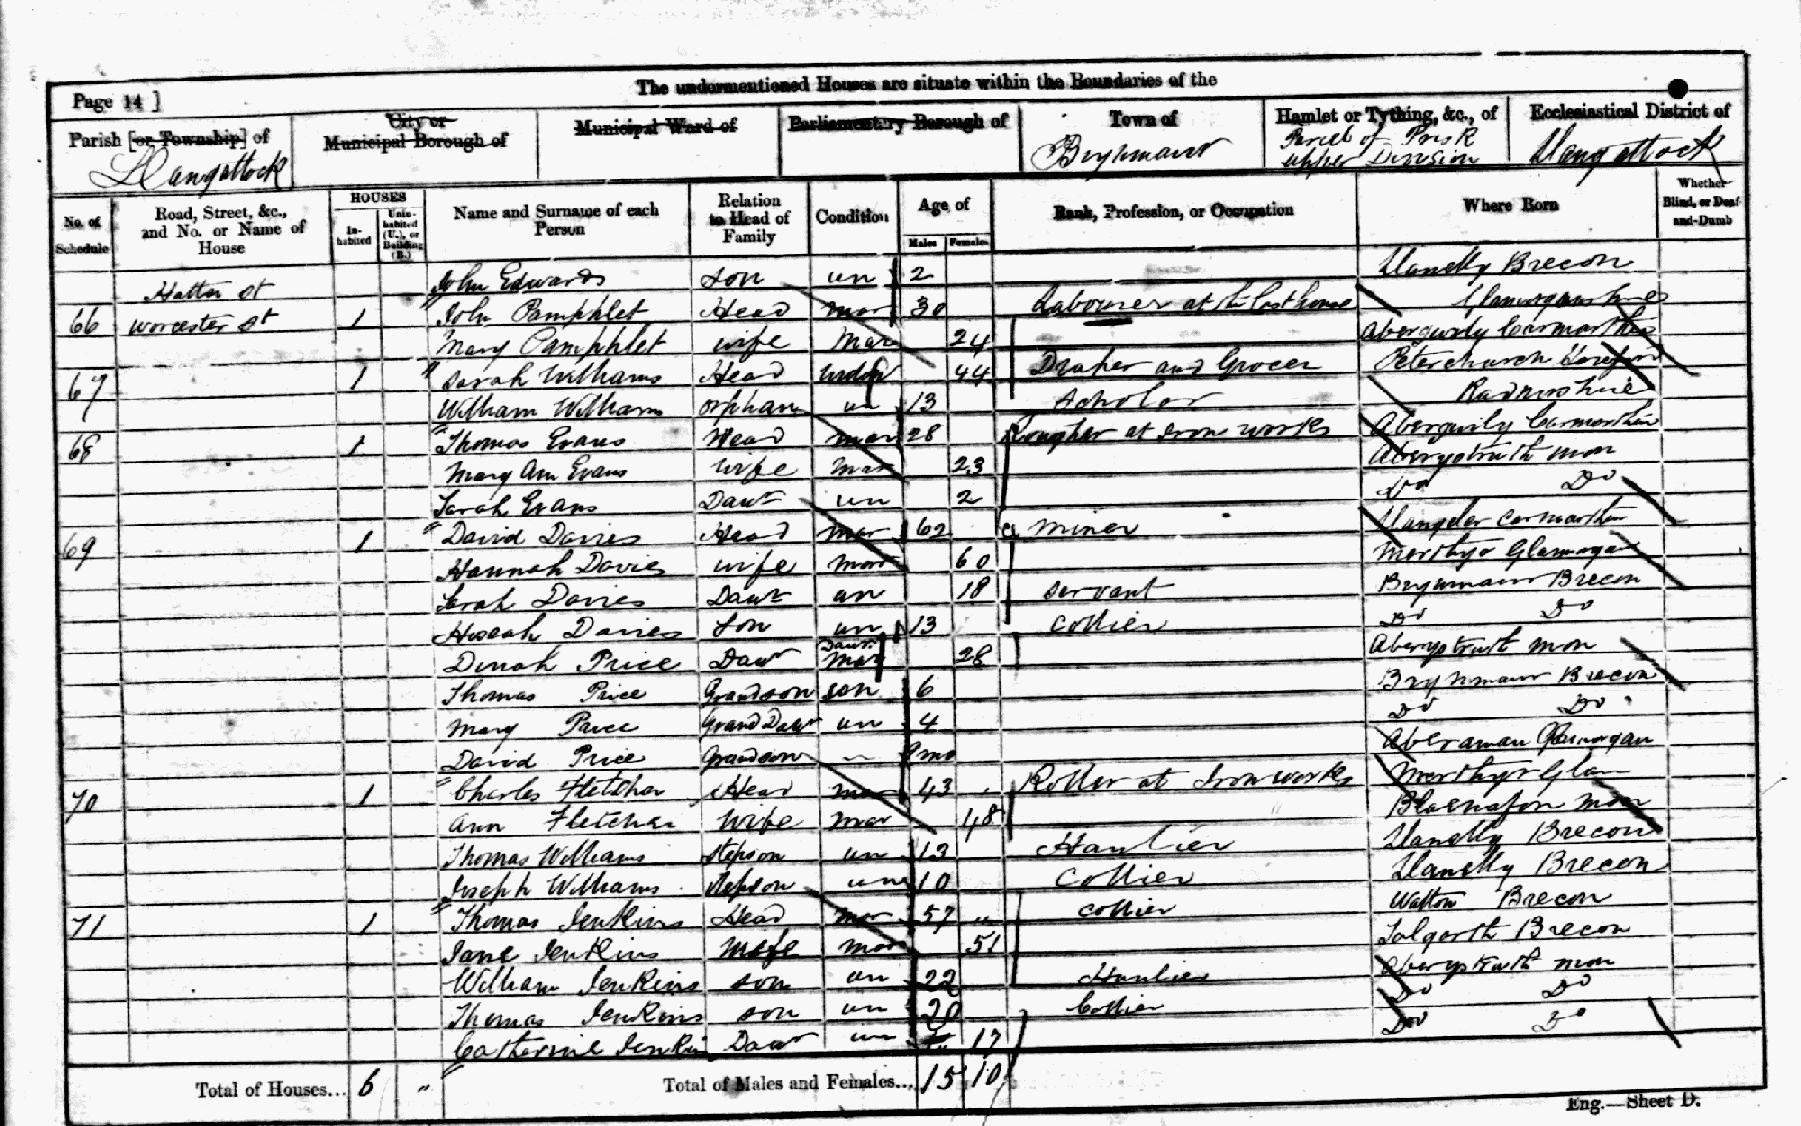 The undermentioned Houses are situate within the Boundaries of the
Page 14 ]
Parish [or Township] of
Llangattock
City or
Municipal Borough of
Municipal Ward of
Parliamentary Borough of
Town of
Brynmawr
Hamlet or Tything, &c., of
Parcel of Prisk
upper Division
Ecclesiastical District of
Llangattock
No. of Schedule
Road, Street, &c., and No. or Name of House
HOUSES
In-habited
Unin-habited (U.), or Building (B.)
Name and Surname of each Person
Relation to Head of Family
Condition
Age of
Males
Females
Rank, Profession, or Occupation
Where Born
Whether Blind, or Deaf-and-Dumb
Hatter St John Edwards son un 2 Llanelly Brecon
66 Worcester St 1 John Pamphlet Head mar 30 Labourer at the Glamorganshire
Mary Pamphlet wife Mar 24 Abergwily Carmarthen
67 1 Sarah Williams Head widow 44 Draper and Grocer Peterchurch Hereford
William Williams orphan un 13 scholar Radnorshire
68 1 Thomas Evans Head mar 28 Rougher at Iron works Abergwily Carmarthen
Mary Ann Evans wife mar 23 Aberystruth mon
Sarah Evans Daur un 2 Do Do
69 1 David Davies Head mar 62 miner Llangeler carmarthen
Hannah Davies wife mar 60 Merthyr Glamorgan
Sarah Davies Daur un 18 servant Brynmawr Brecon
Hoseah Davies son un 13 collier Do Do
Dinah Price Daur Daur mar 28 Aberystruth mon
Thomas Price Grandson son 6 Brynmawr Brecon
Mary Price Grand Daur un 4 Do Do
David Price Grandson " 9 mo Aberaman Glamorgan
70 1 Charles Fletcher Head mar 43 Roller at Iron works Merthyr Glam
Ann Fletcher Wife mar 48 Blaenafon mon
Thomas Williams stepson un 13 Haulier Llanelly Brecon
Joseph Williams stepson un 10 Collier Llanelly Brecon
71 1 Thomas Jenkins Head mar 57 " collier Watton Brecon
Jane Jenkins wife mar 51 Talgarth Brecon
William Jenkins son un 22 Haulier Aberystruth mon
Thomas Jenkins son un 20 Collier Do Do
Catherine Jenkin Daur un 17 Do Do
Total of Houses... 6 "
Total of Males and Females... 15 10
Eng.—Sheet D.